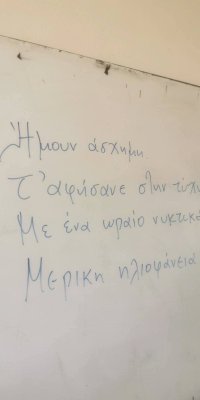 Ήμουν άσχημη.
Τ' αφήσανε στην τύχη
Με ένα ωραίο νυκτικό
Μερικη ηλιοφάνεια